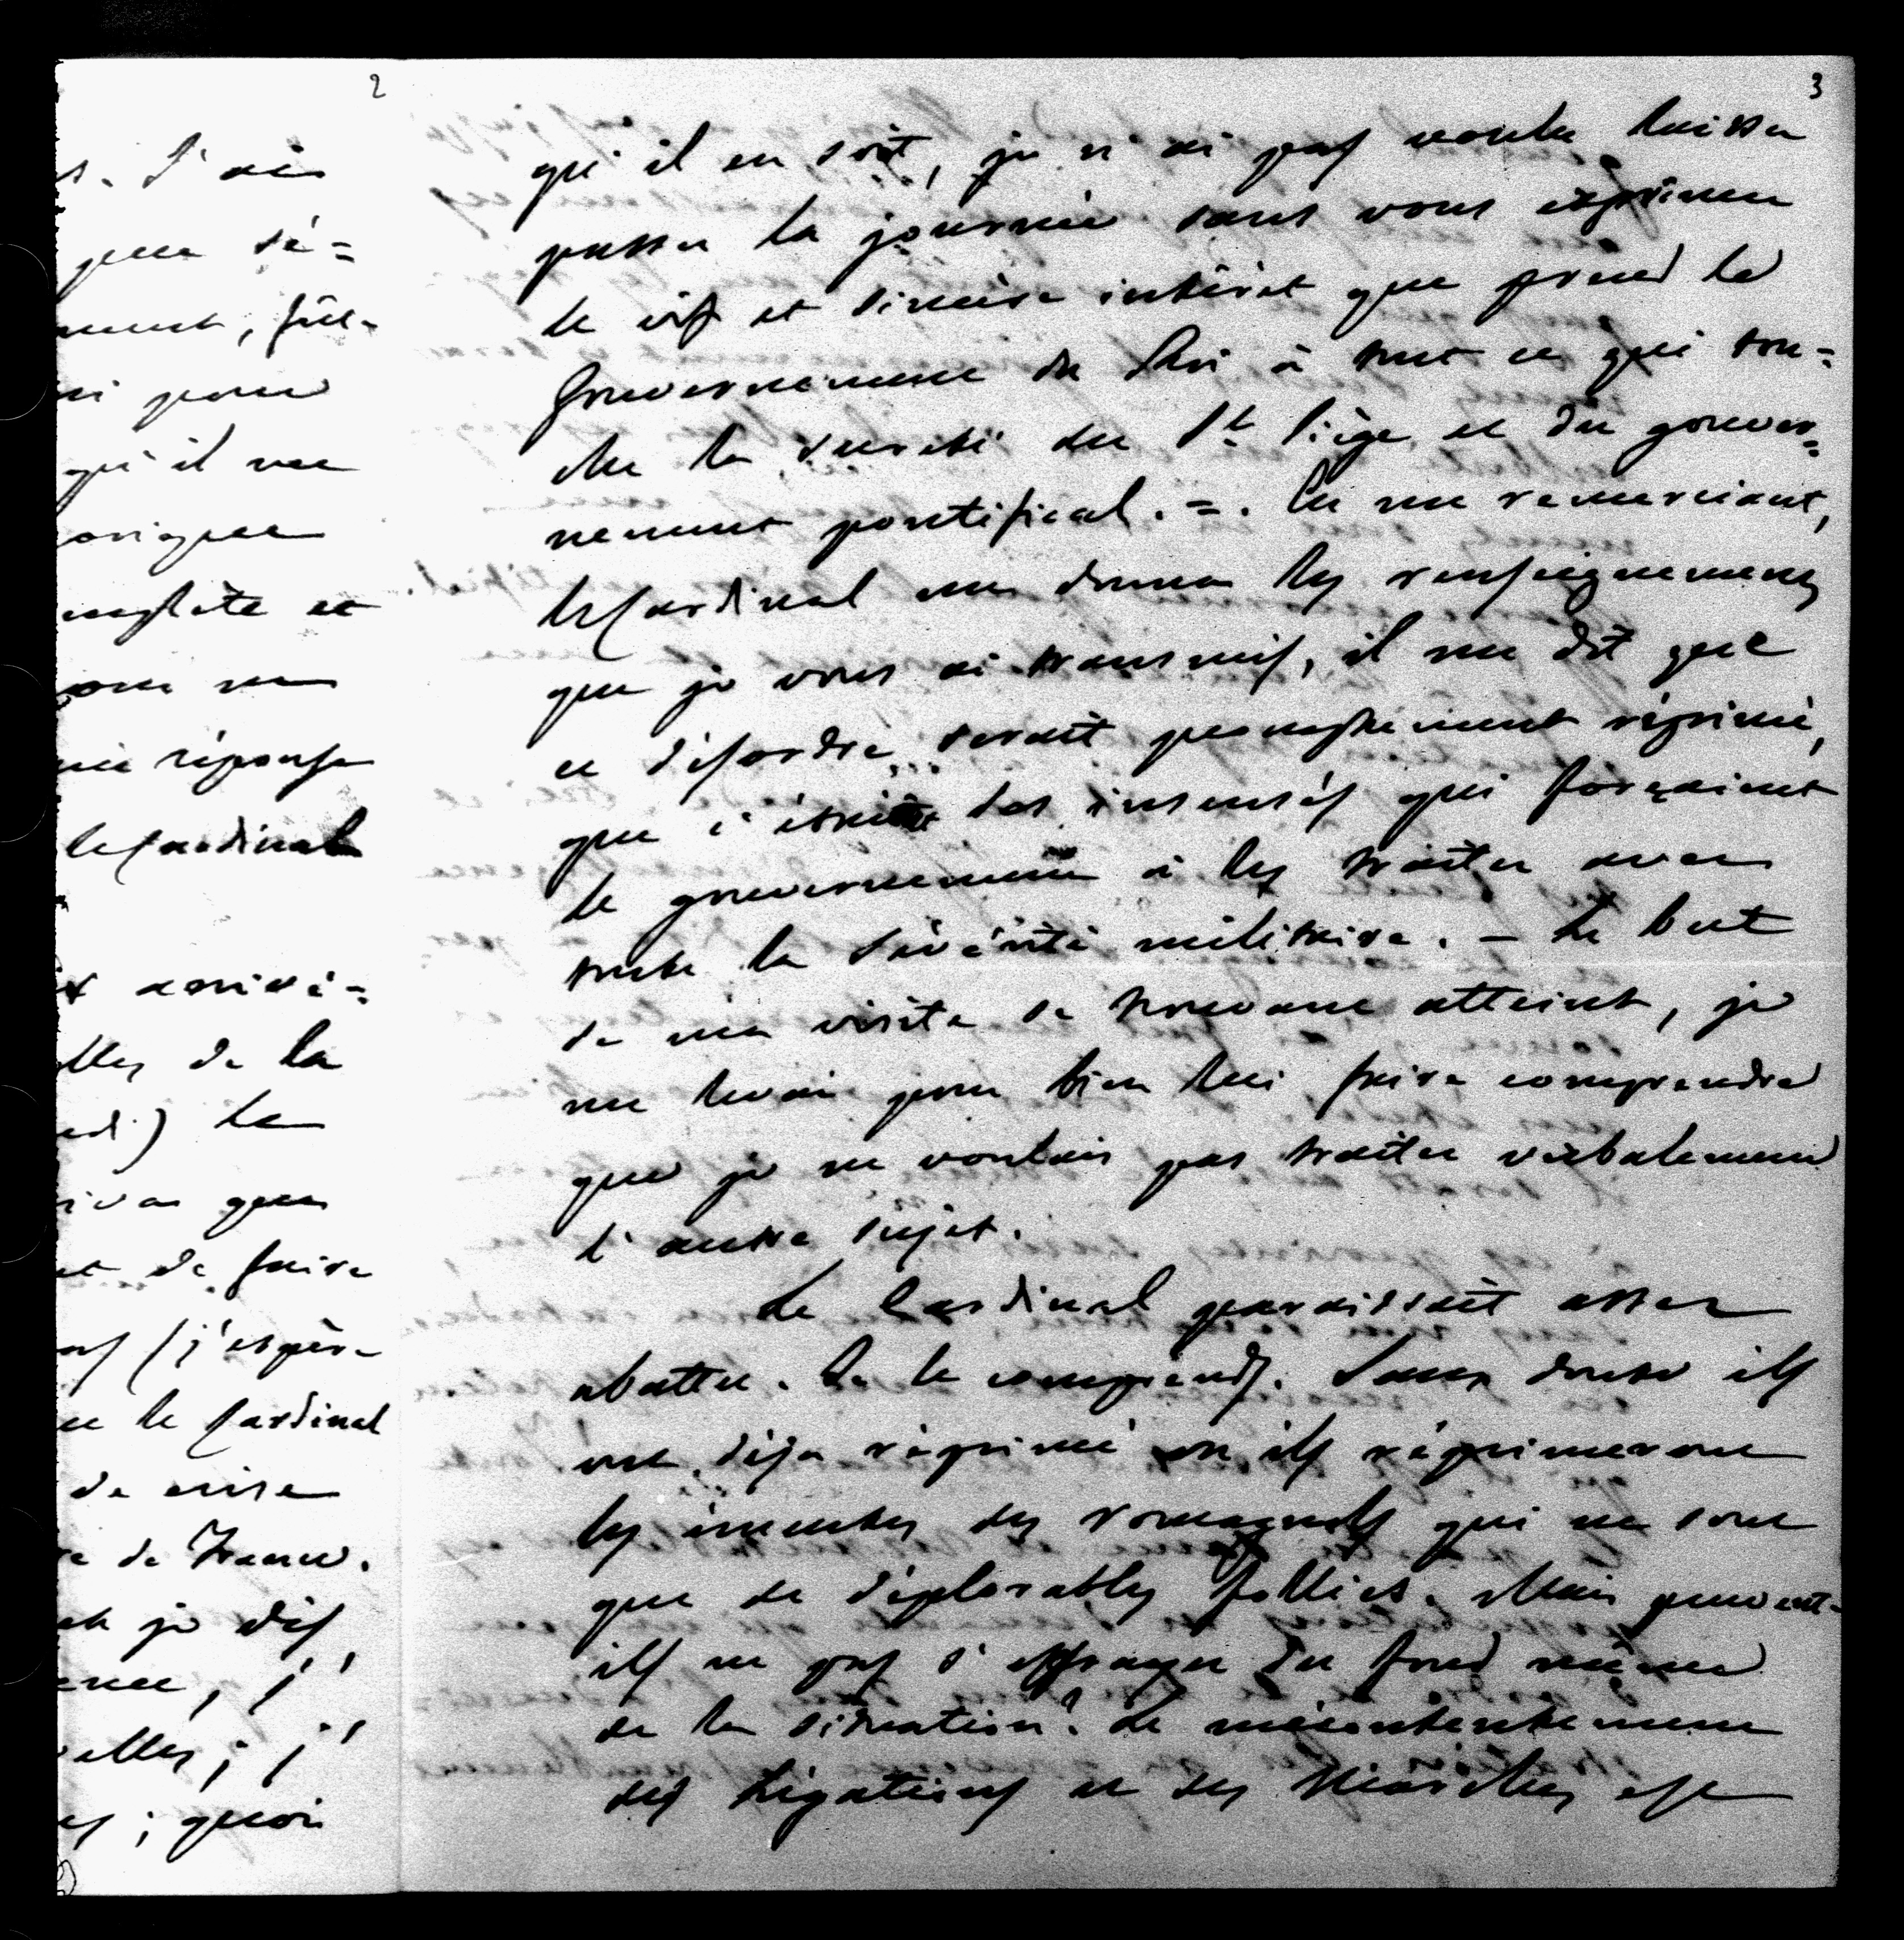 2
s. J'ai
pour ré=
ment, fût-
ni pour
qu'il me
presque
complète et
une réponse
le Cardinal
arrivé=
elles de la
di) le
que
et de faire
(j'espère
ue le Cardinal
de crise
re de France.
et je dis
j'
elles ; j'
; quoi
3
qu'il en soit, je n'ai pas voulu laisser
passer la journée sans vous exprimer
le vif et sincère intérêt que prend le
Gouvernement du Roi à tout ce qui tou=
che la sureté du St Siège et du gouver=
nement pontifical. = . En me remerciant,
le Cardinal me donna les renseignemens
que je vous ai transmis, il me dit que
ce désordre serait promptement réprimé,
que c'était des insensés qui forçaient
le gouvernement à les traiter avec
toute la sévérité militaire. – Le but
de ma visite se trouvant atteint, je
me levai pour bien lui faire comprendre
que je ne voulais pas traiter verbalement
l'autre sujet.
Le Cardinal paraissait assez
abattu. Je le comprends. Sans doute ils
ont déja réprimé ou ils réprimeront
les émeutes des romagnols qui ne sont
que de déplorables folies. Mais peuvent-
ils ne pas s'effrayer du fond même
de la situation ? Le mécontentement
des Légations et des Marches est